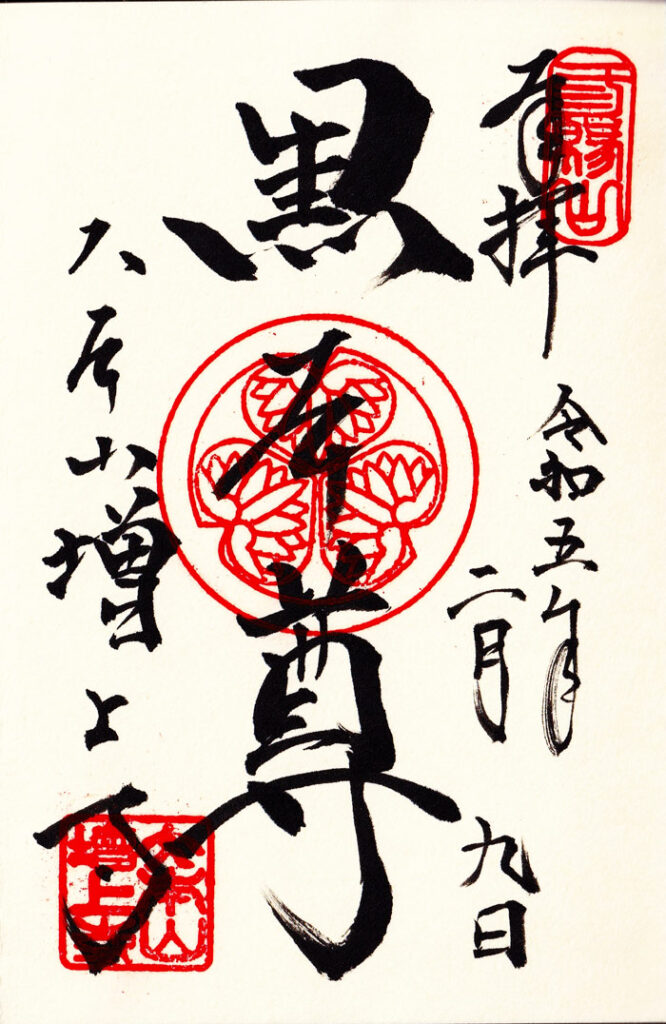 三縁山
奉拝
令和五年
二月
九日
黒本尊
大本山増上寺
大本山
增上寺